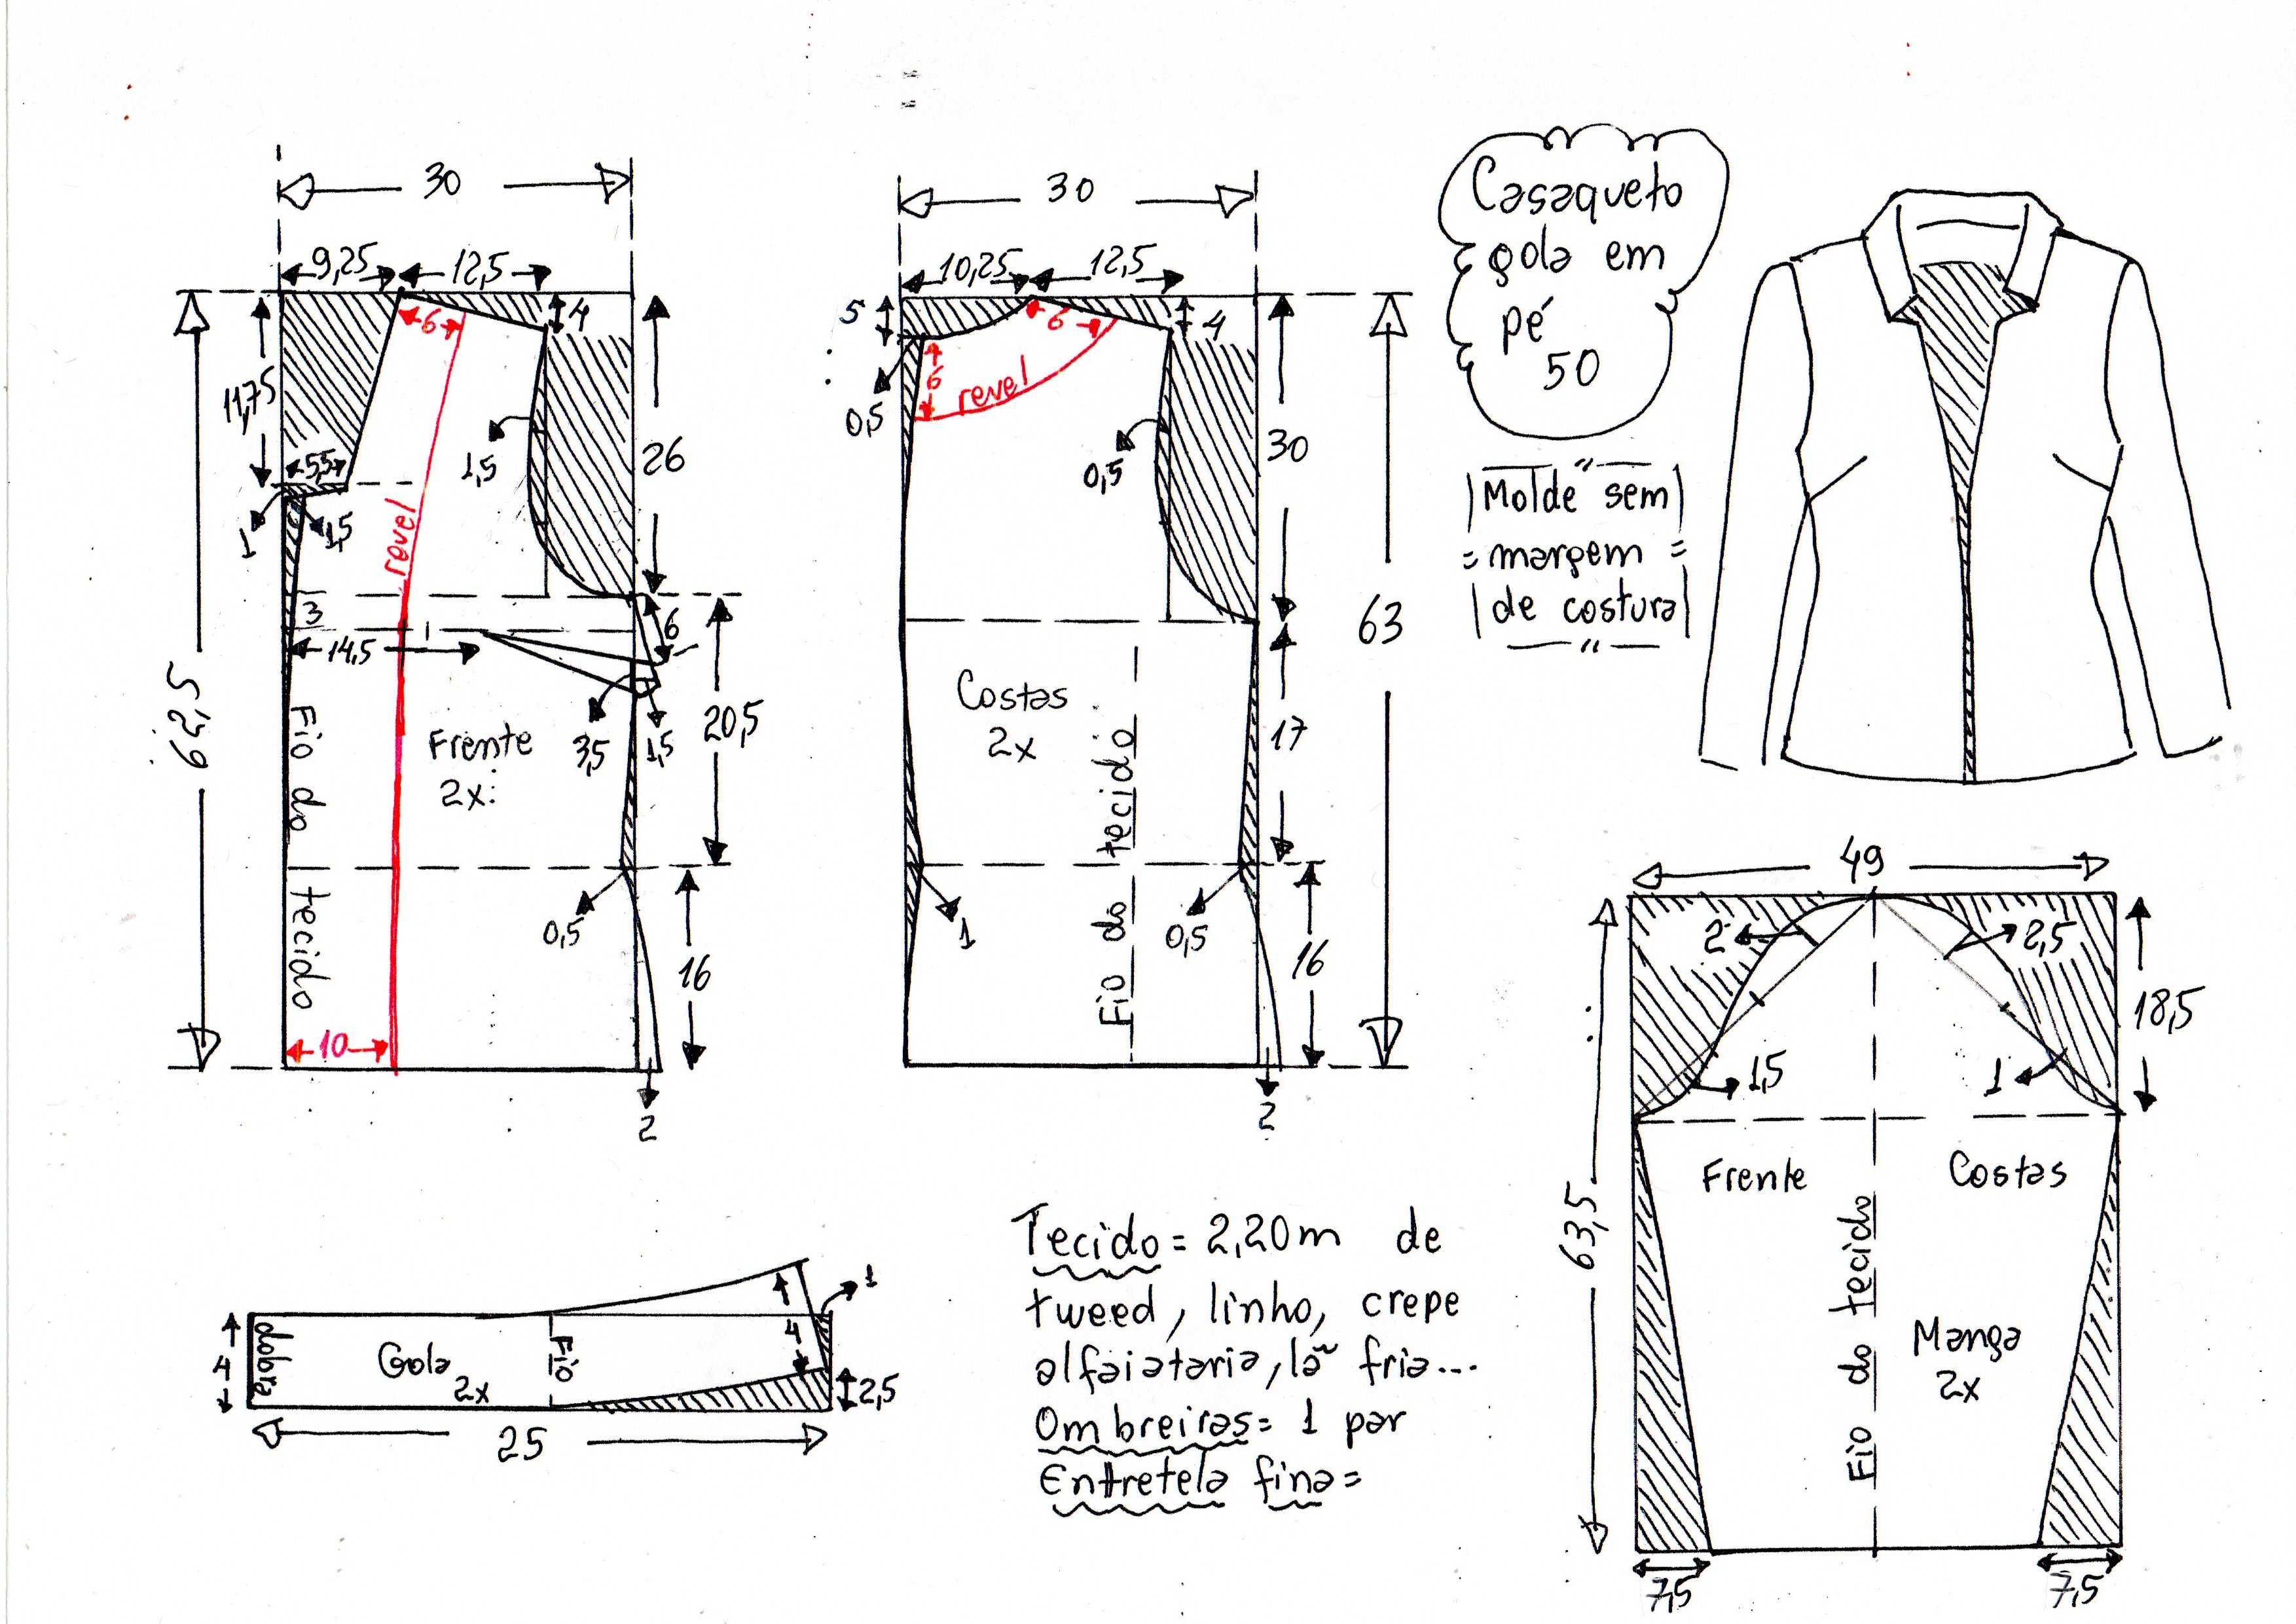 30
9,25
12,5
4
6
11,75
5,5
1
1,5
1,5
26
revel
3
14,5
6
3,5
1,5
20,5
62,5
Frente
2x
Fio do tecido
0,5
16
10
2
30
10,25
12,5
5
4
6
6
revel
0,5
0,5
30
63
Costas
2x
17
Fio do tecido
1
0,5
16
2
Casaqueto
gola em
pé
50
Molde sem
margem
de costura
49
2
2,5
18,5
1,5
1
63,5
Frente
Costas
Fio do tecido
Manga
2x
7,5
7,5
dobra
4
Gola
2x
Fio
4
1
2,5
25
Tecido = 2,20m de
tweed, linho, crepe
alfaiataria, lã fria...
Ombreiras = 1 par
Entretela fina =